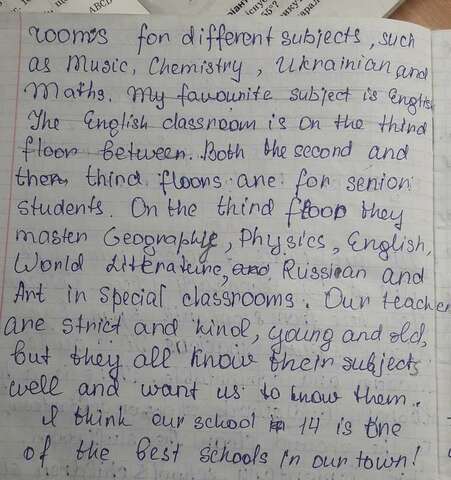 rooms for different subjects, such
as Music, Chemistry, Ukrainian and
Maths. My favourite subject is Englis
The English classroom is on the third
floor between. Both the second and
then third floors are for senior
students. On the third floor they
master Geography, Physics, English,
World Literature, and Russian and
Art in special classrooms. Our teacher
are strict and kind, young and old,
but they all know their subjects
well and want us to know them.
I think our school in 14 is one
of the best schools in our town!